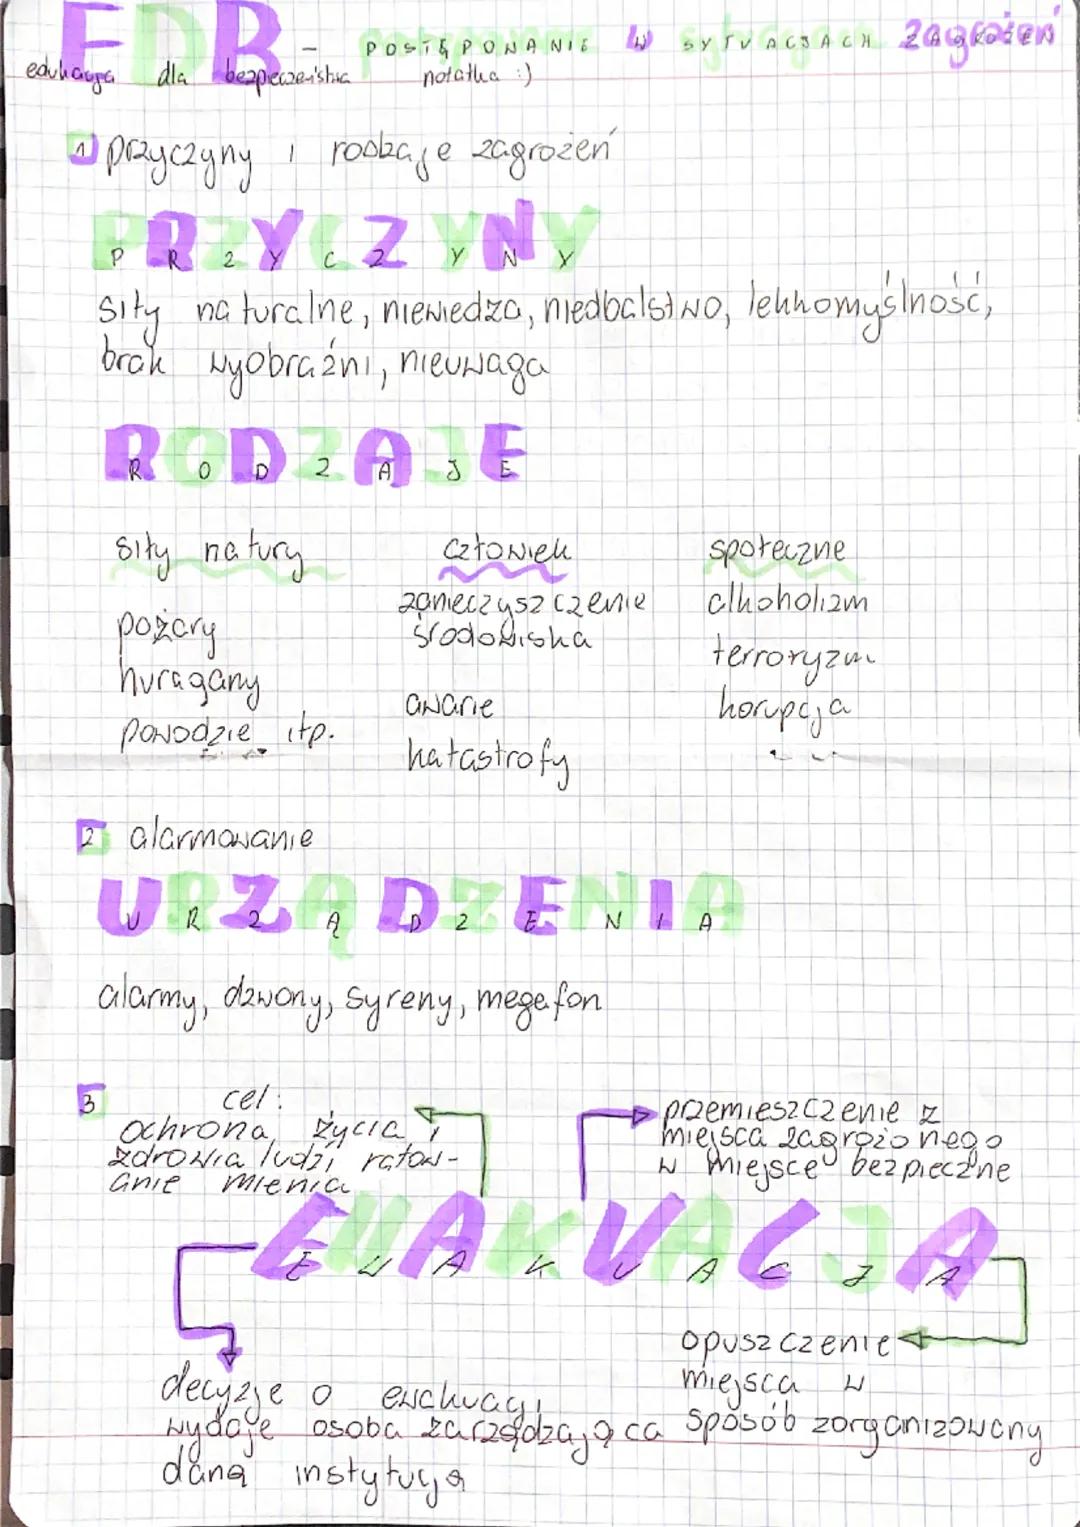 EDB - POSTĘPOWANIE W SYTUACJACH ZAGROŻEŃ
edukacja dla bezpieczeństwa notatka :)
1 przyczyny i rodzaje zagrożeń
PRZYCZYNY
siły naturalne, niewiedza, niedbalstwo, lekkomyślność,
brak wyobraźni, nieuwaga
RODZAJE
siły natury
pożary
huragany
powodzie itp.
człowiek
zanieczyszczenie
środowiska
awarie
katastrofy
społeczne
alkoholizm
terroryzm
korupcja
2 alarmowanie
URZĄDZENIA
alarmy, dzwony, syreny, megafon
3 cel:
ochrona życia i
zdrowia ludzi, ratow-
anie mienia
przemieszczenie z
miejsca zagrożonego
w miejsce bezpieczne
EWAKUACJA
decyzje o ewakuacji
wydaje osoba zarządzająca
daną instytucją
opuszczenie
miejsca w
sposób zorganizowany